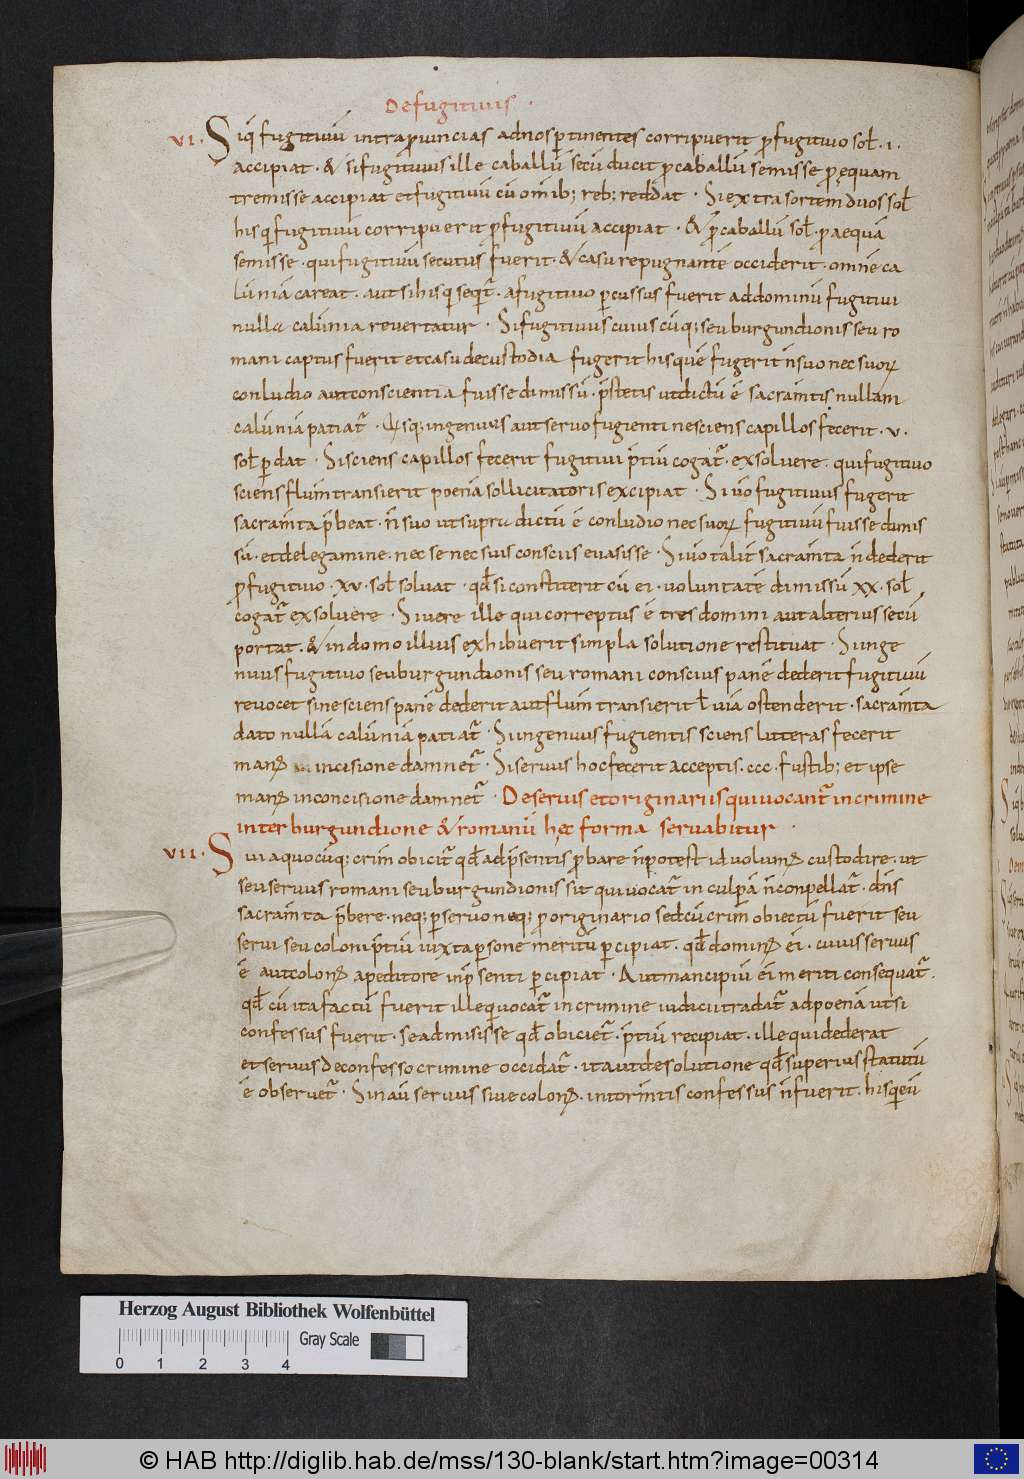 De fugitiuis .
VI. Siq̄ fugitiuū intra ꝓuincias ad nos ꝑtinentes corripuerit ꝓ fugitiuo sol̄. I.
accipiat . & si fugitiuus ille caballū secū ducit ꝓ caballū semisse ꝓ equam
tremisse accipiat et fugitiuū cū omib; reb; reddat . Si extra sortem duos sol̄
his qui fugitiuū corripuerit ꝓ fugitiuū accipiat . & ꝓ caballū sol̄ . ꝓ aequā
semisse . qui fugitiuū secutus fuerit . & casu repugnantē occiderit . omnē ca
lūniā careat . aut si his qui seqit̄ . a fugitiuo ꝑcussus fuerit ad dominū fugitiui
nulla calūnia reuertatur . Si fugitiuus cuius cūq; seu burgundionis seu ro
mani captus fuerit et casu de custodia fugerit hisquē fugerit n̄ suo nec suoꝝ
conludio aut conscientia fuisse dimissū . p̄stetis ut dictū ē sacram̄tis nullam
calūniā patiat̄ . Qisq; ingenuus aut seruo fugienti nesciens capillos fecerit . v .
sol̄ ꝑdat . Si sciens capillos fecerit fugitiui p̄tiū cogat̄ . exsoluere . qui fugitiuo
sciens flum̄ transierit poena sollicitatoris excipiat . Si uō fugitiuus fugerit
sacram̄ta p̄beat . n̄ suo ut supra dictū ē conludio nec suoꝝ fugitiuū fuisse dimis
sū . et delegamine . nec se nec suis consciis euasisse . Si uō talit̄ sacram̄ta n̄ dederit
ꝓ fugitiuo . xv . sol̄ soluat . qđ si constiterit cū ei . uoluntatē dimissū xx . sol̄
cogat̄ exsoluere . Si uere ille qui correptus ē tres domini aut alterius secū
portat . & in domo illius exhibuerit simpla solutione restituat . Si inge
nuus fugitiuo seu burgundionis seu romani conscius panē dederit fugitiuū
reuocet sine sciens panē dederit aut flum̄ transierit l̄ uiā ostenderit . sacram̄ta
dato nullā calūniā patiat̄ . Si ingenuus fugientis sciens litteras fecerit
manꝰ incisione damnet̄ . Si seruus hoc fecerit acceptis . ccc . fustib; et ipse
manꝰ in concisione damnet̄ . De seruis et originariis qui uocant̄ in crimine
inter burgundione & romanū hęc forma seruabitur .
VII. Si ui a quocūq; crim̄ obicit̄ qđ ad p̄sentis ꝓbare n̄ potest id uolumꝰ custodire . ut
seu seruus romani seu burgundionis sit qui uocat̄ in culpā n̄ conpellat̄ . dn̄s
sacram̄ta p̄bere . neq; ꝑ seruo neq; ꝓ originario sed cū crim̄ obiectū fuerit seu
serui seu coloni p̄tiū iuxta ꝑsone meritū ꝑcipiat . qđ dominꝰ ei . cuius seruus
ē aut colonꝰ a petitore in p̄senti ꝑcipiat . Aut mancipiū ei meriti consequat̄ .
qđ cū ita factū fuerit ille qi uocat̄ in crimine iudici tradat̄ ad poenā ut si
confessus fuerit . se admisisse qđ obiciet̄ . p̄tiū recipiat . ille qui dederat
et seruus de confesso crimine occidat̄ . ita ut de solutione qđ superius statutū
ē obseruet̄ . Sin aū seruus siue colonꝰ . in torm̄tis confessus n̄ fuerit . his qi eū
Herzog August Bibliothek Wolfenbüttel
Gray Scale
0 1 2 3 4
© HAB http://diglib.hab.de/mss/130-blank/start.htm?image=00314